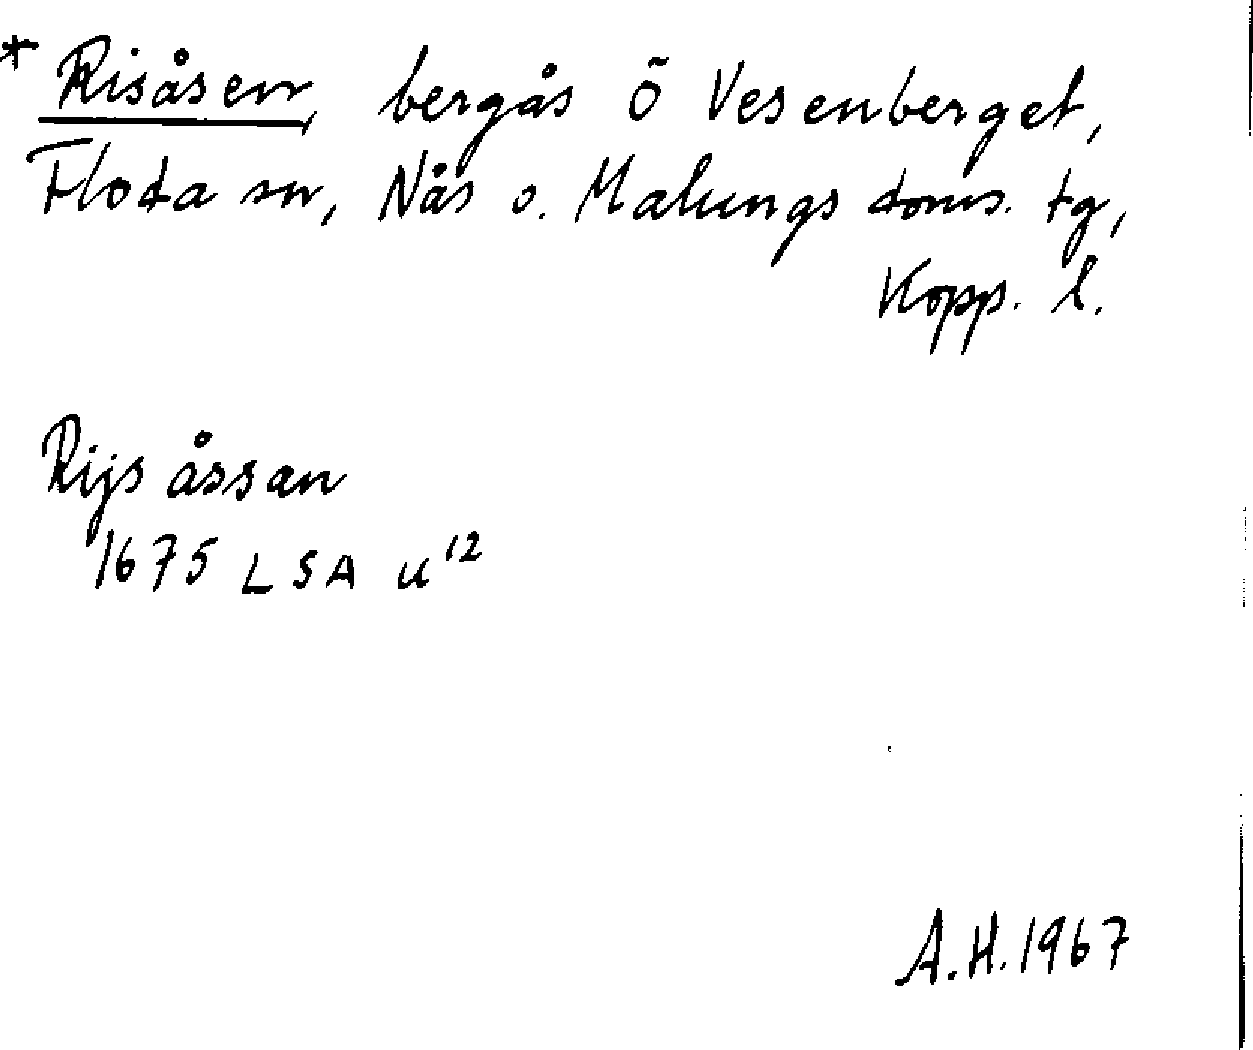 * Risåsen, bergås Ö Vesenberget,
Floda sn, Nås o. Malungs doms. tg,
Kopp. l.
Rijs åssan
1675 LSA U¹²
A.H. 1967